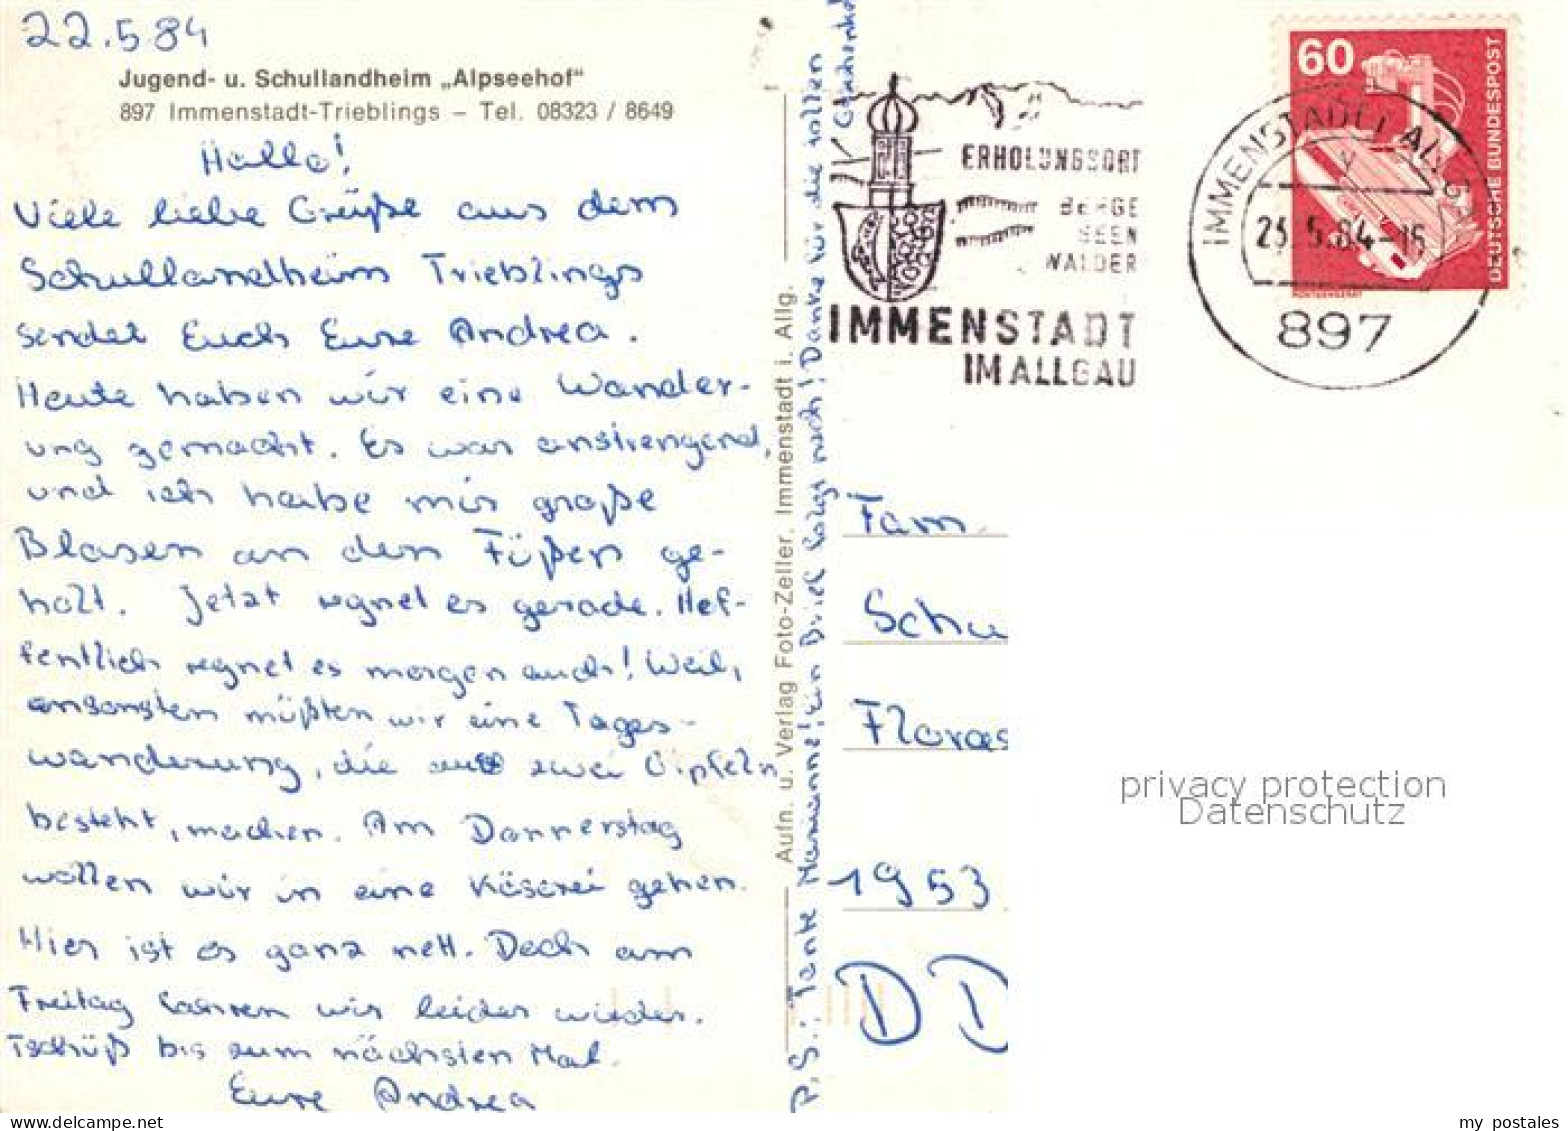 22.5.84
Jugend- u. Schullandheim „Alpseehof“
897 Immenstadt-Trieblings – Tel. 08323 / 8649
Hallo!
Viele liebe Grüße aus dem
Schullandheim Trieblings
sendet Euch Eure Andrea.
Heute haben wir eine Wander-
ung gemacht. Es war anstrengend,
und ich habe mir große
Blasen an den Füßen ge-
holt. Jetzt regnet es gerade. Hof-
fentlich regnet es morgen auch! Weil,
ansonsten müßten wir eine Tages-
wanderung, die aus zwei Gipfeln
besteht, machen. Am Donnerstag
wollen wir in eine Käserei gehen.
Hier ist es ganz nett. Doch am
Freitag fahren wir leider wieder.
Tschüß bis zum nächsten Mal.
Eure Andrea
Aufn. u. Verlag Foto-Zeller, Immenstadt i. Allg.
P.S.: Tante Marianne! Ein Brief folgt noch! Danke für die tollen
Geschenke
ERHOLUNGSORT
BERGE
SEEN
WÄLDER
IMMENSTADT
IM ALLGÄU
60
DEUTSCHE BUNDESPOST
RÖNTGENGERÄT
IMMENSTADT I ALLGÄU
23.5.84-16
897
Fam.
Schu
Floras
1953
D
privacy protection
Datenschutz
my postales